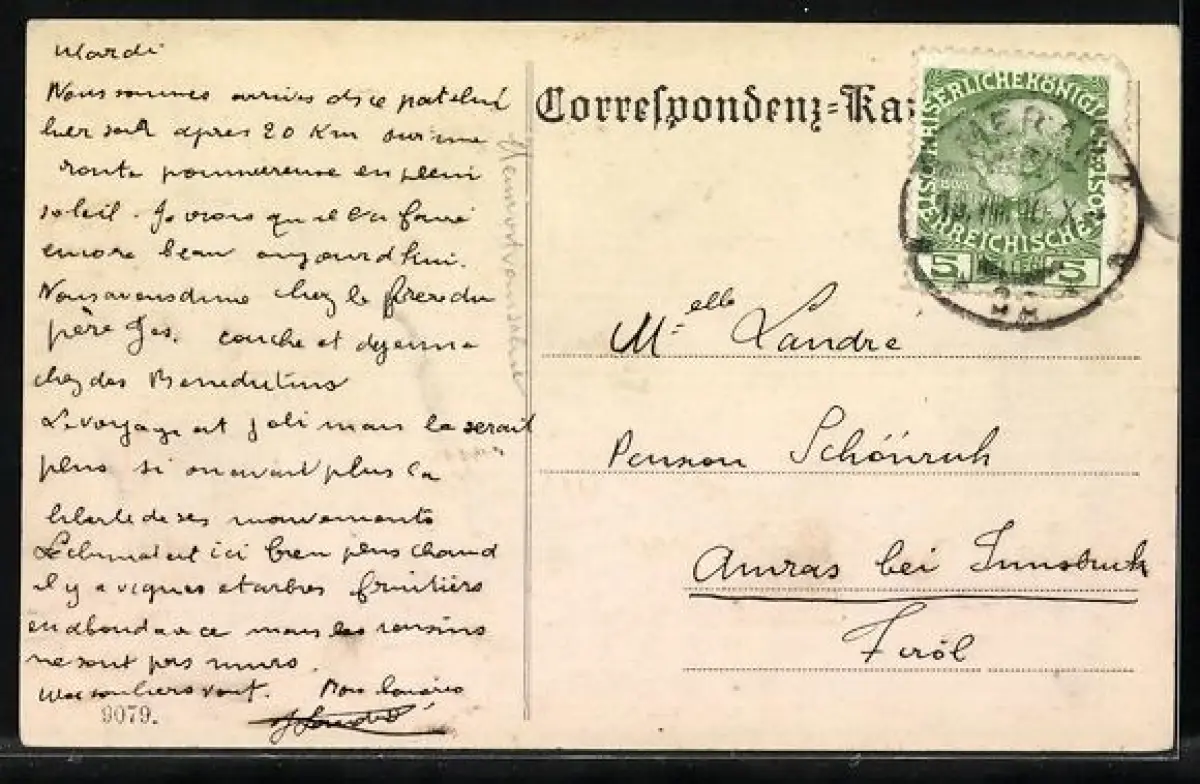 Mardi
Nous sommes arrivés
hier soir après 20 Km sur une
route poussiereuse en plein
soleil. Je crois qu'il va faire
encore beau aujourd'hui.
Nous avons diné chez le frère du
père couché et dejeuné
chez des Benedictins
Le voyage est joli mais le serait
plus si on avait plus la
liberté de ses mouvements
Le climat est ici bien plus chaud
il y a vignes et arbres fruitiers
en abondance mais les raisins
ne sont pas murs.
Mes souliers vont. Bons baisers
9079.
Correspondenz-Ka
KAISERLICHE KÖNIGLICHE ÖSTERREICHISCHE
MERAN
5 HELLER 5
Melle Landré
Pension Schönruh
Amras bei Innsbruck
Tirol